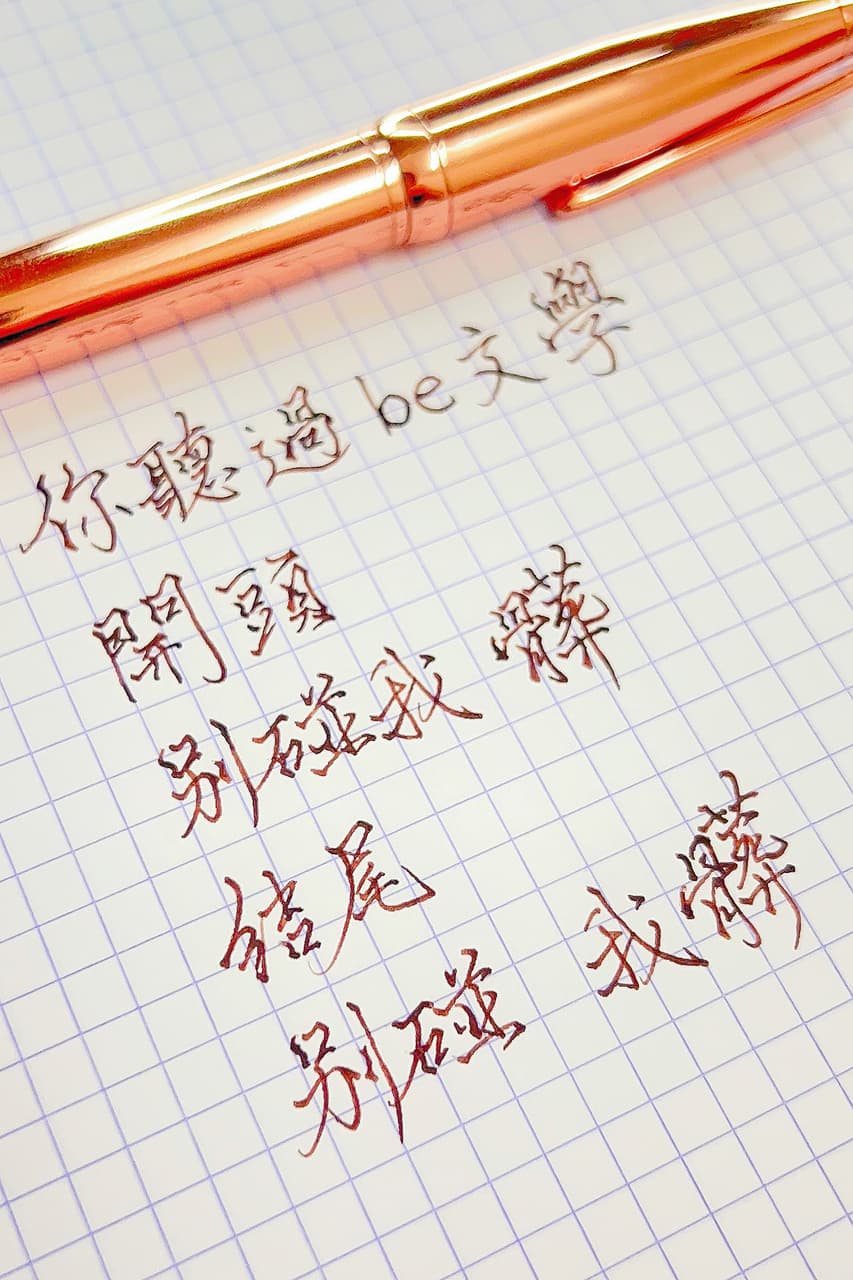 你聽過be文學
開頭
別碰我 髒
結尾
別碰 我髒